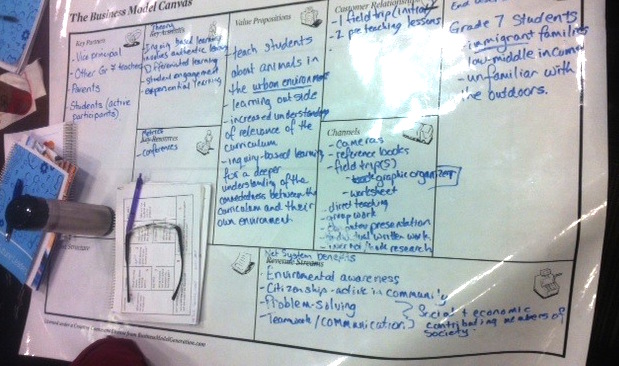 The Business Model Canvas
Key Partners
- Vice principal
- Other Gr 7 teachers
Parents
Students (active
participants)
Theory
Key Activities
- Inquiry based learning
involves authentic learning
- Differentiated learning
- student engagement
- experiential learning
Metrics
Key Resources
- conferences
Value Propositions
- teach students
about animals in
the urban environment
- learning outside
- increased understanding
of relevance of the
curriculum
- inquiry-based learning
for a deeper
understanding of the
connectedness between the
curriculum and their
own environment
Customer Relationships
- 1 field trip (initial)
- 2 pre teaching lessons
Channels
- Cameras
- reference books
- field trip(s)
- graphic organizer
- worksheet
- direct teaching
- group work
- presentation
- written work
- research
End
Grade 7 Students
- immigrant families
- low-middle income
- unfamiliar with
the outdoors.
Structure
Net System benefits
Revenue Streams
- Environmental awareness
- Citizenship - active in community
- Problem-Solving
- Teamwork/communication
Social + economic
contributing members of
society